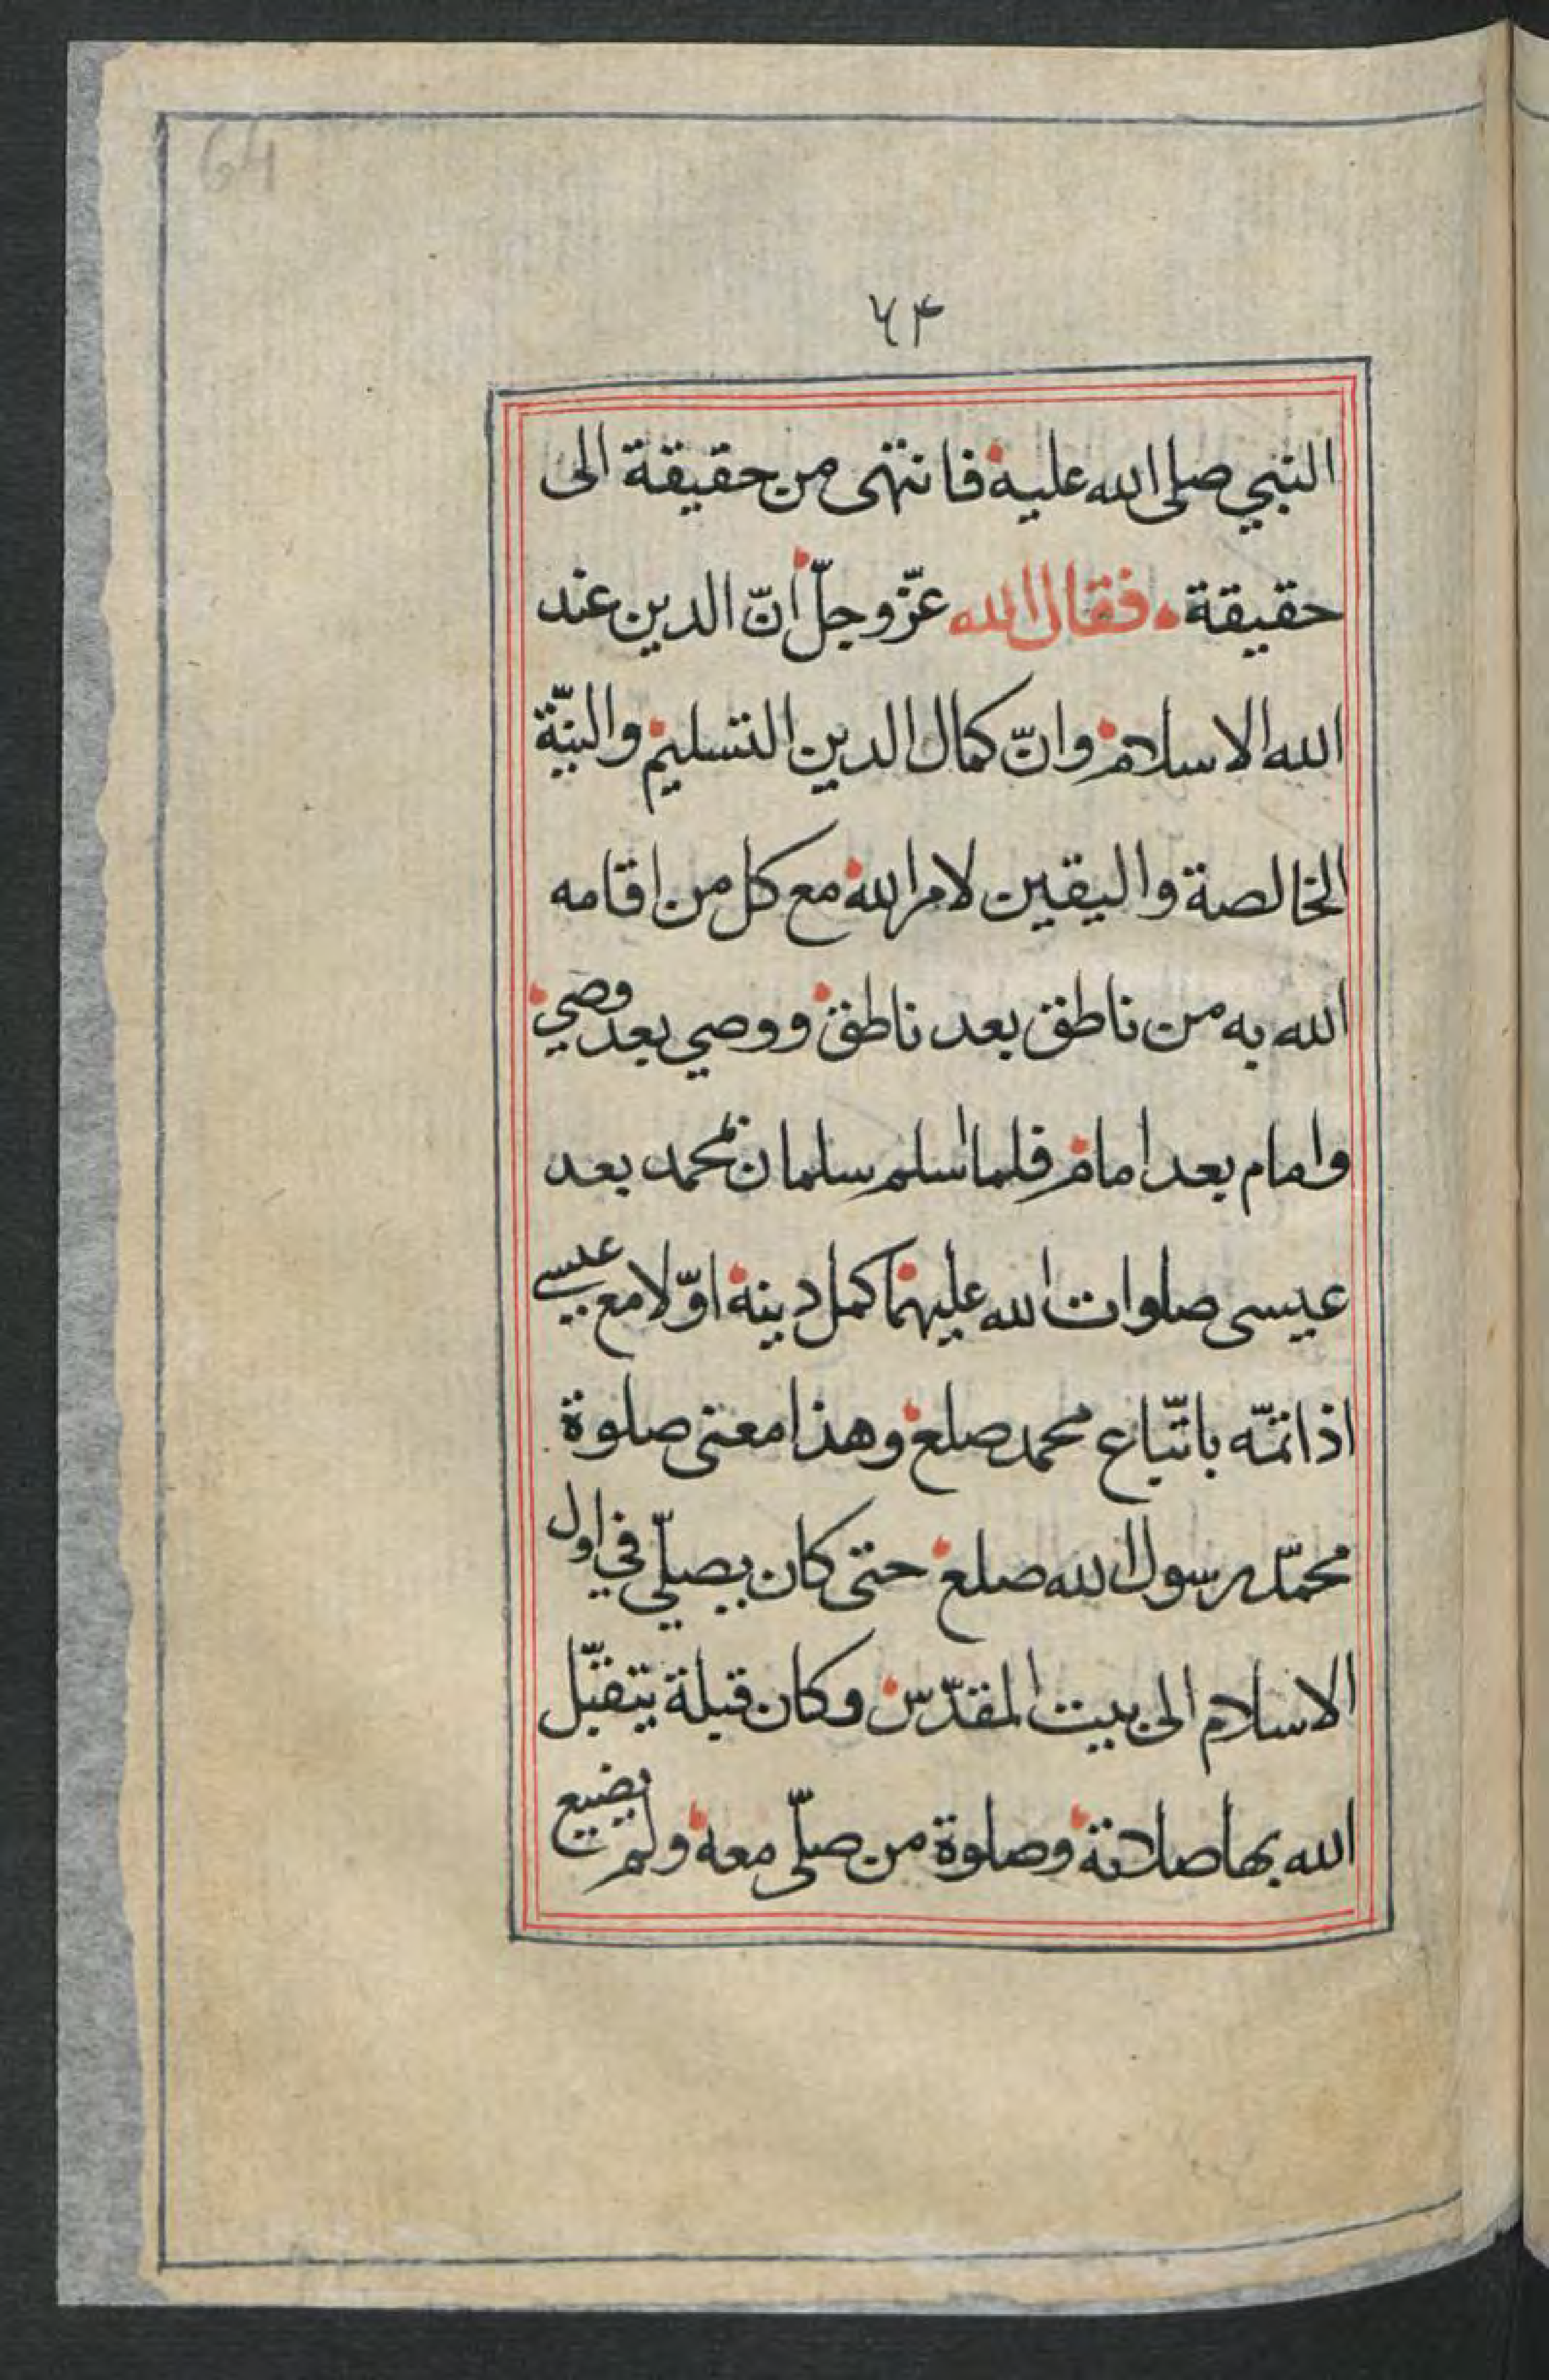 64
٦٤
النبي صلى الله عليه فانتهى من حقيقة الى
حقيقة فقال الله عزّ وجلّ انّ الدين عند
الله الاسلام وانّ كمال الدين التسليم والنيّة
الخالصة واليقين لامر الله مع كل من اقامه
الله به من ناطق بعد ناطق ووصي بعد وصي
وامام بعد امام فلما اسلم سلمان بمحمد بعد
عيسى صلوات الله عليهما كمل دينه اوّلا مع عيسى
اذ اتمّه باتّباع محمد صلع وهذا معنى صلوة
محمّد رسول الله صلع حتى كان يصلّي في اول
الاسلام الى بيت المقدّس وكان قبلة يتقبّل
الله بها صلاته وصلوة من صلّى معه ولم يضيع